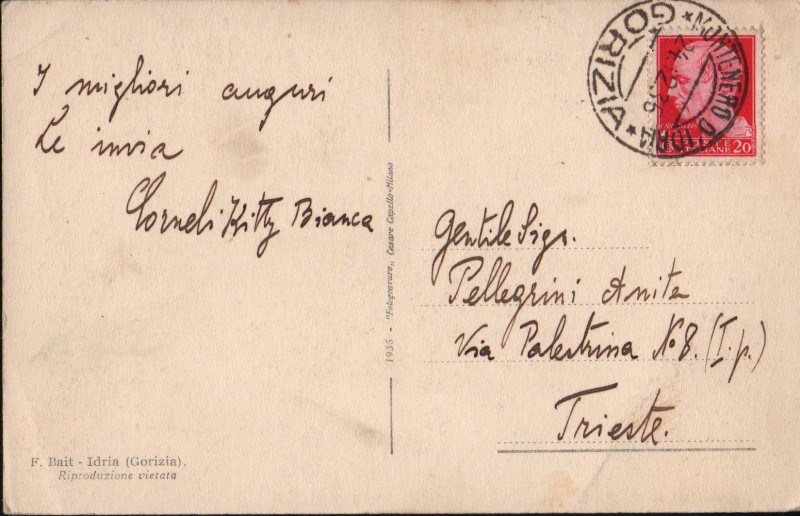 I migliori auguri
Le invia
Corneli Kitty Bianca
1935 - "Fotogravure„ Cesare Capello-Milano
F. Bait - Idria (Gorizia).
Riproduzione vietata
*MONTENERO D'IDRIA*
GORIZIA
POSTE ITALIANE 20
Gentile Sigr.
Pellegrini Anita
Via Palestrina No 8. (I. p.)
Trieste.